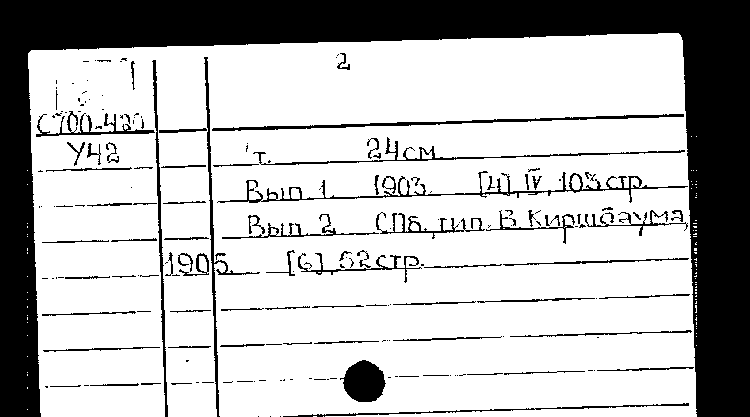 2
С700-420
У42
т. 24 см.
Вып. 1. 1903. [4], IV, 103 стр.
Вып. 2 СПб., тип. В. Киршбаума,
1905. [6], 52 стр.